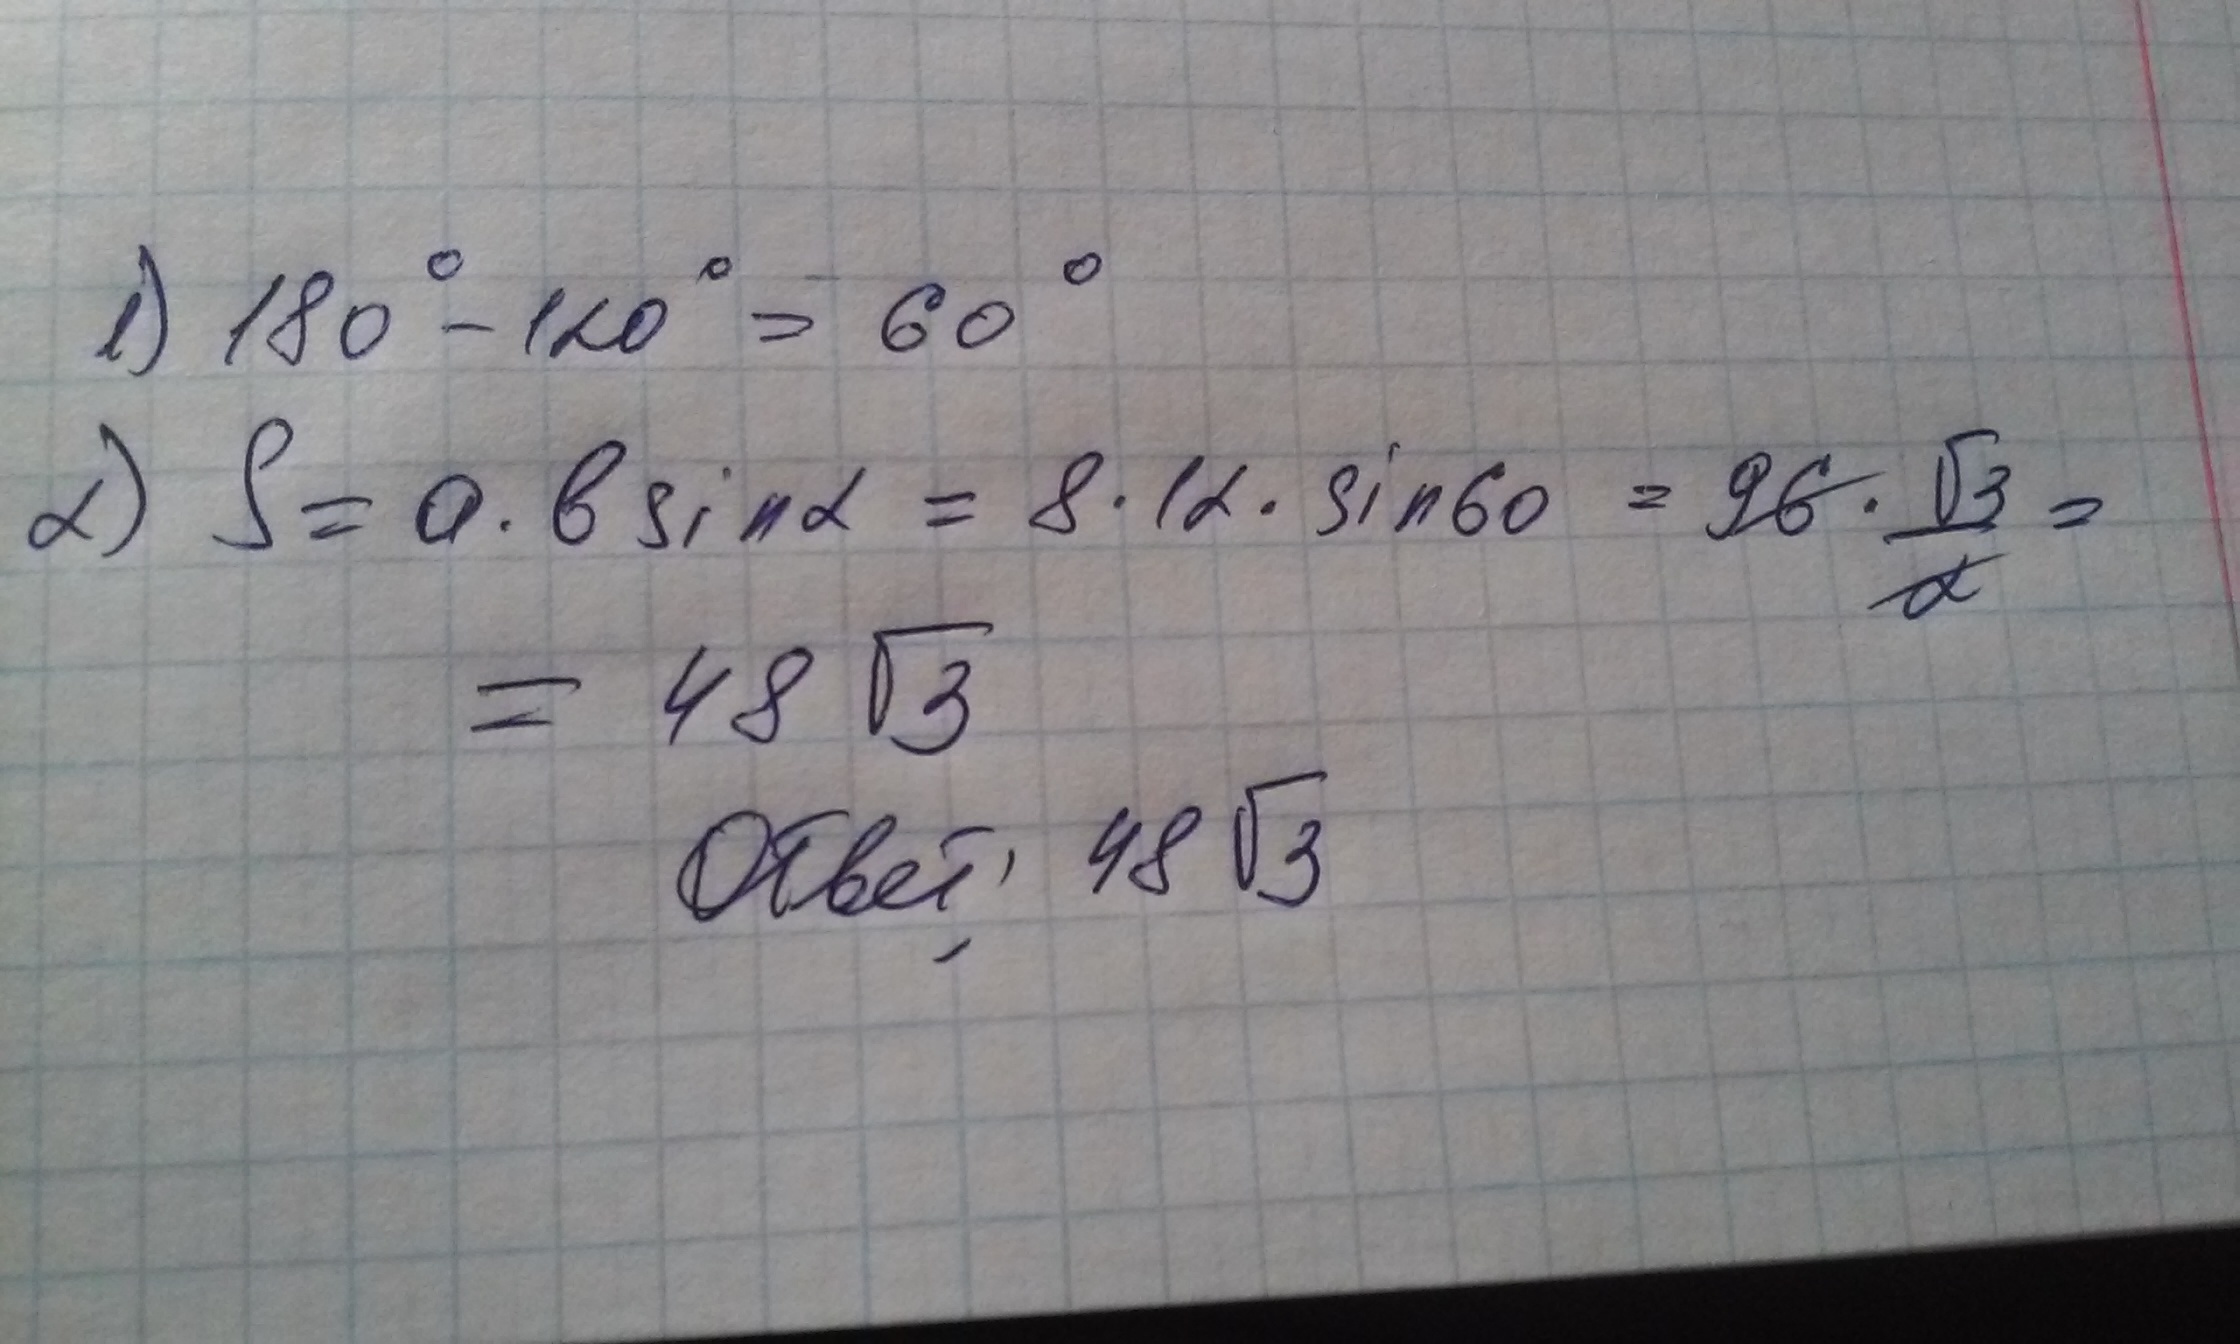 1) 180° - 120° = 60°
2) S = a · b sin α = 8 · 12 · sin 60 = 96 · √3/2 =
= 48 √3
Ответ: 48 √3